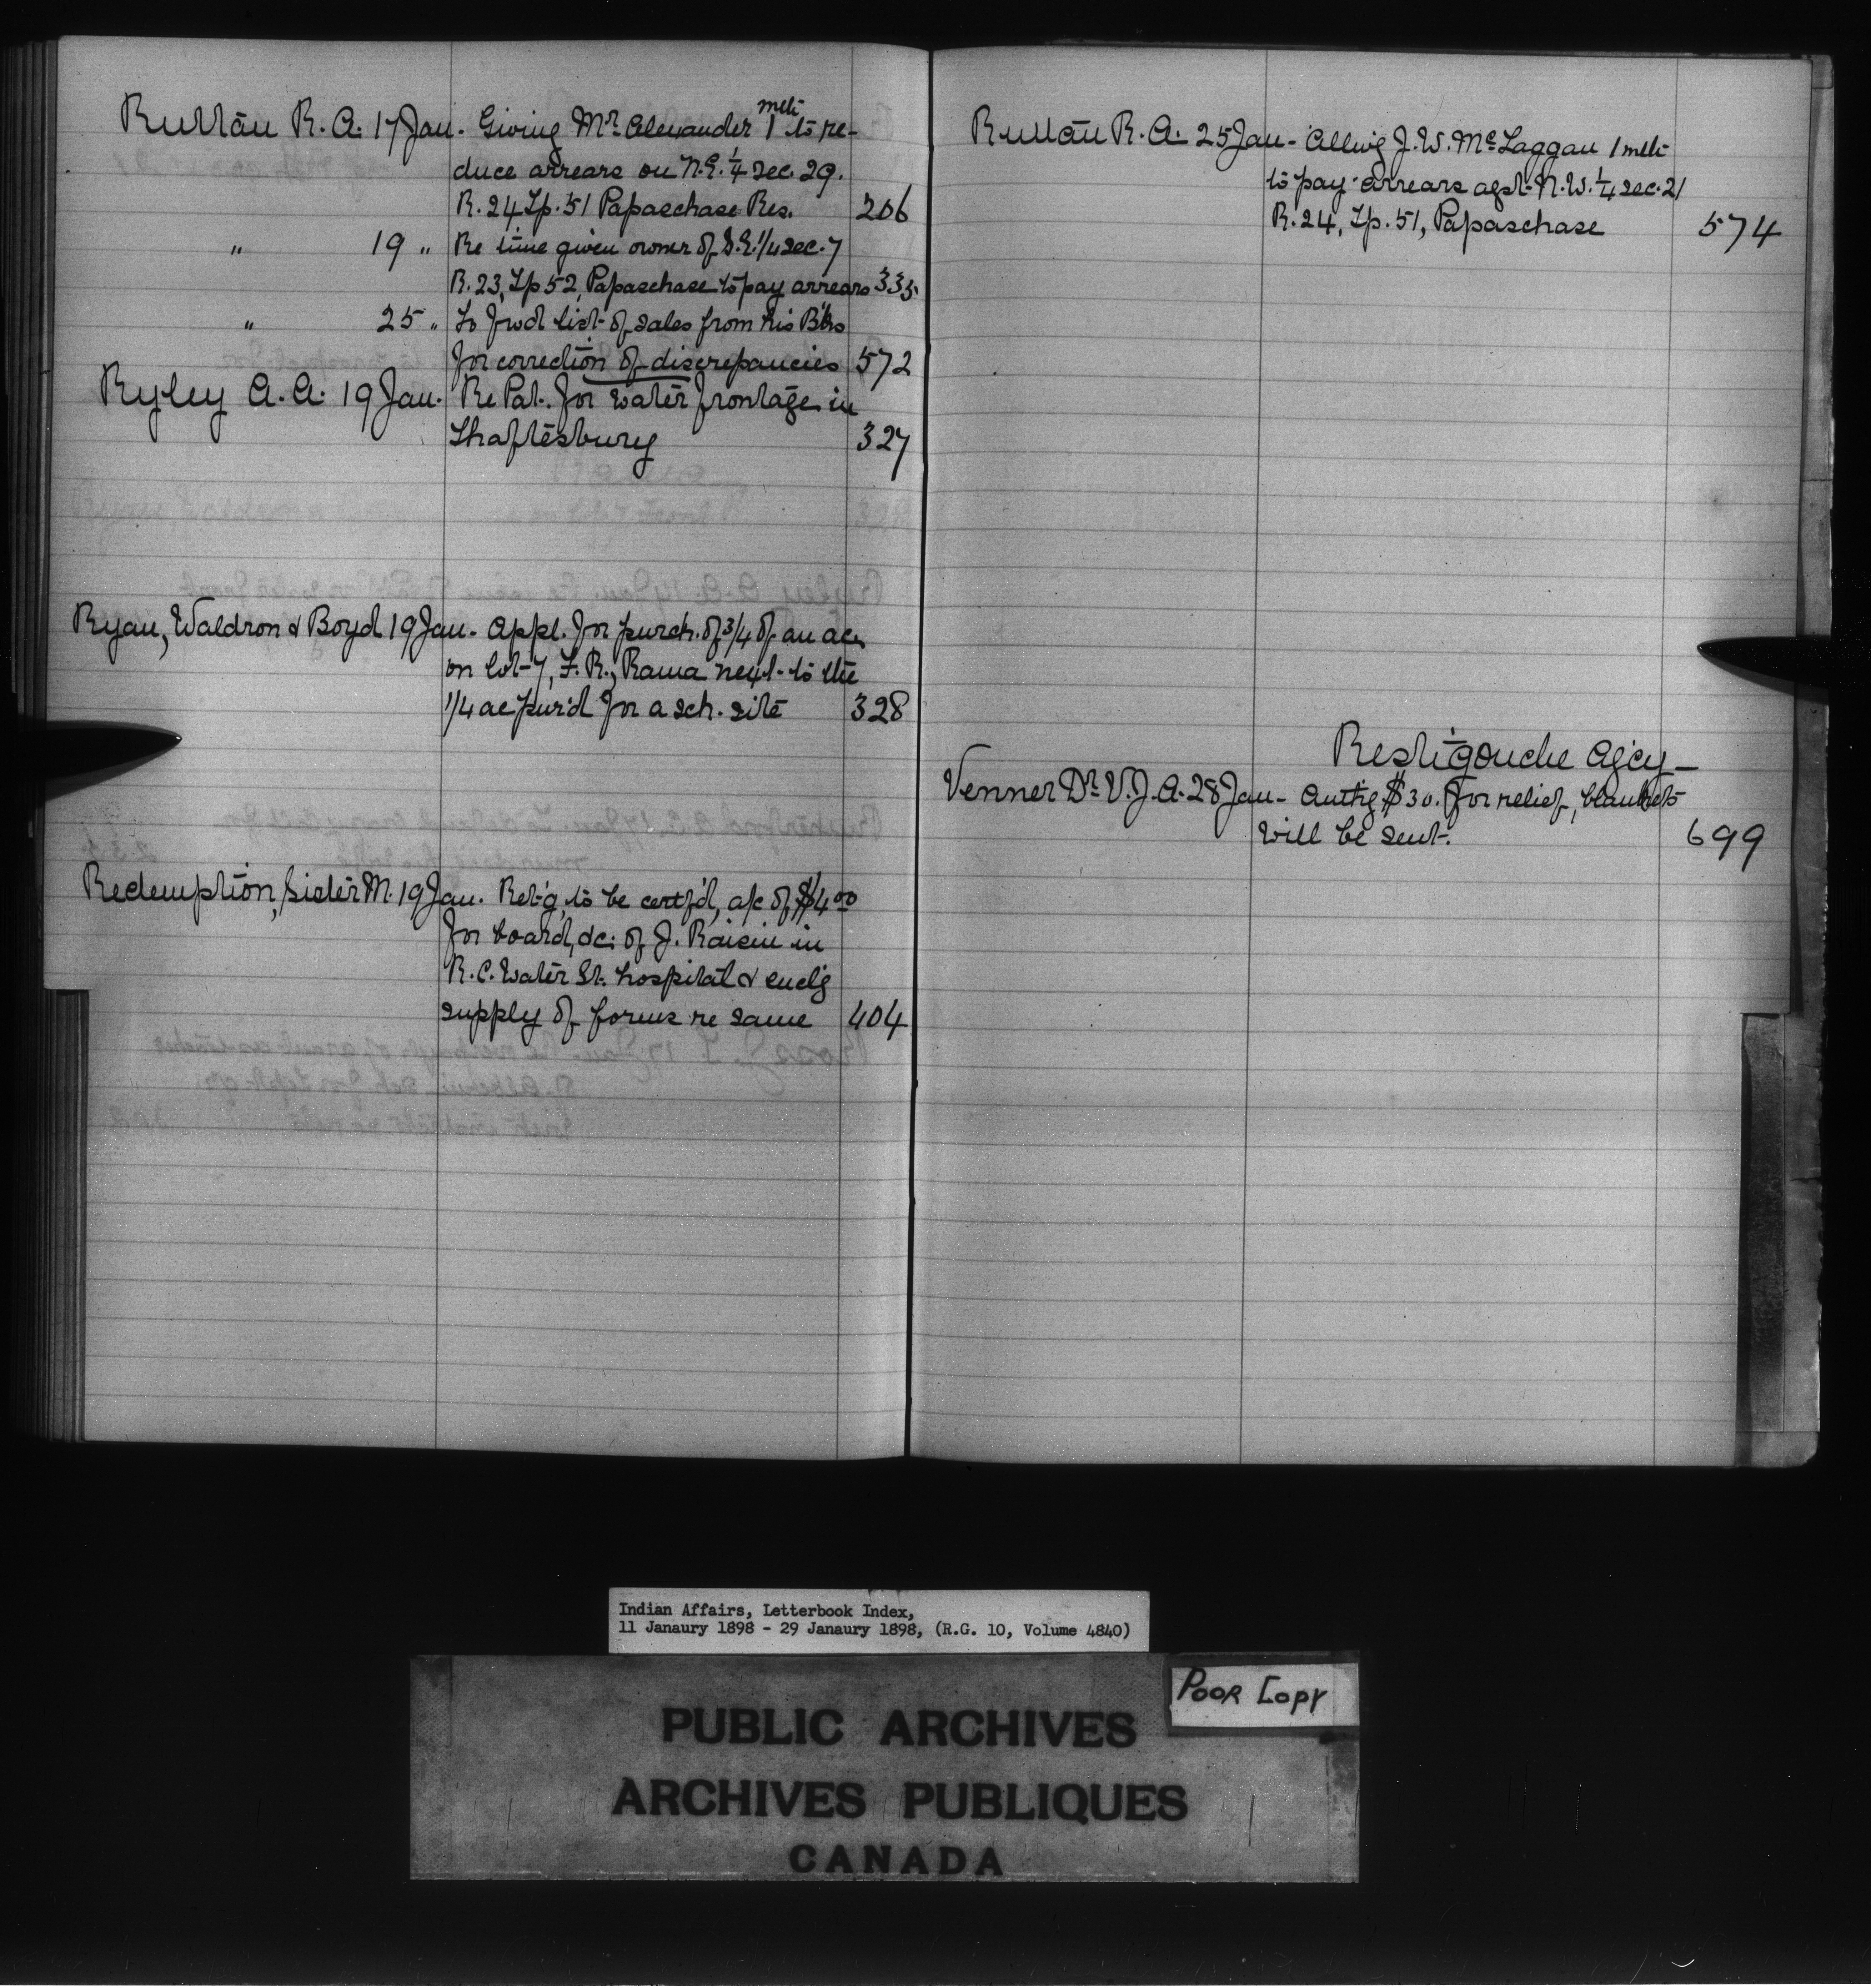 Ruttan R. A. 17 Jan. Giving Mr Alexander 1 mth to re-
duce arrears on N.E. 1/4 sec. 29.
R. 24 Tp. 51 Papaschase Res. 206
" 19 " Re time given owner of S.E. 1/4 sec. 7
R. 23, Tp 52, Papaschase to pay arrears 335
" 25 " To fwd list of sales from his B'ks
for correction of discrepancies 572
Ryley A. A. 19 Jan. Re Pat. for water frontage in
Shaftesbury 327
Ryan, Waldron & Boyd 19 Jan. Appl. for purch. of 3/4 of an ac.
on lot 7, F. R., Rama next to the
1/4 ac pur'd for a sch. site 328
Redemption, Sister M. 19 Jan. Ret'g, to be certf'd, a/c of $4.00
for board, &c: of J. Raisin in
R. C. Water St. hospital & encl'g
supply of forms re same 404
Ruttan R. A. 25 Jan - Allwg J. W. McLaggan 1 mth
to pay arrears agst N.W. 1/4 sec. 21
R. 24, Tp. 51, Papaschase 574
Restigouche Ag'cy -
Venner Dr V. J. A. 28 Jan - Auth'g $30. for relief, blankets
will be sent. 699
Indian Affairs, Letterbook Index,
11 Janaury 1898 - 29 Janaury 1898, (R.G. 10, Volume 4840)
POOR COPY
PUBLIC ARCHIVES
ARCHIVES PUBLIQUES
CANADA